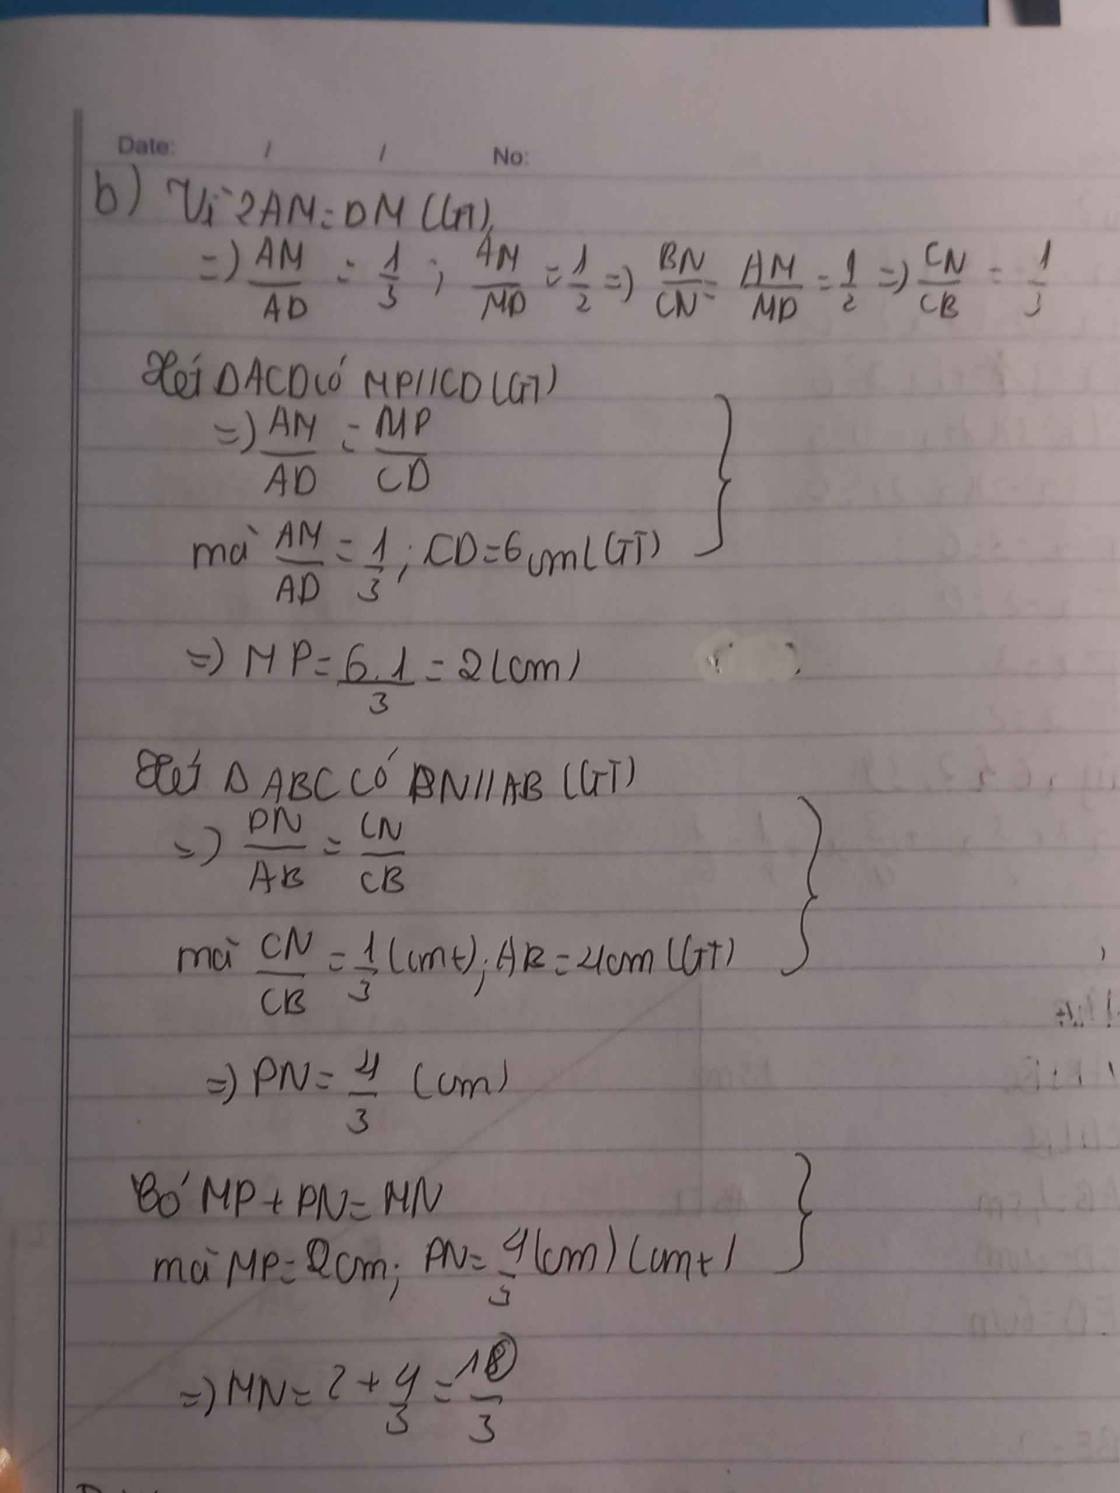 Date: / / No:
b) Vì 2AM=DM (GT)
=) AM/AD = 1/3 ; AM/MD = 1/2 =) BN/CN = AM/MD = 1/2 =) CN/CB = 1/3
Xét ΔACD có MP//CD (GT)
=) AM/AD = MP/CD
mà AM/AD = 1/3 ; CD=6cm (GT)
=) MP = 6.1/3 = 2 (cm)
Xét Δ ABC có BN//AB (GT)
=) PN/AB = CN/CB
mà CN/CB = 1/3 (cmt) ; AB = 4cm (GT)
=) PN = 4/3 (cm)
Có MP + PN = MN
mà MP = 2cm ; PN = 4/3 (cm) (cmt)
=) MN = 2 + 4/3 = 10/3